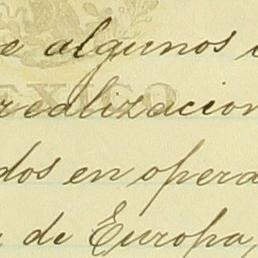 e algunos
MEXICO
realizacion
dos en opera
de Europa,